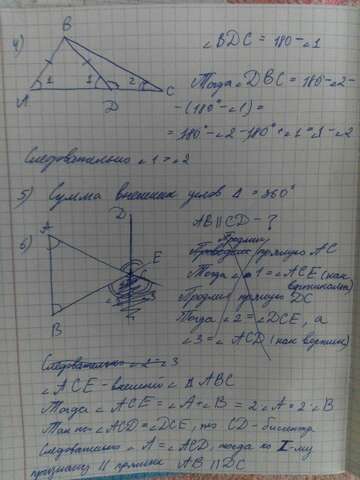 4)
B
A
1
1
D
2
C
∠BDC = 180 - ∠1
Тогда ∠DBC = 180° - ∠2 -
- (180° - ∠1) =
= 180° - ∠2 - 180° + ∠1 = ∠1 - ∠2
Следовательно ∠1 = ∠2
5) Сумма внешних углов Δ = 360°
6)
A
B
D
E
C
3
AB || CD - ?
Продлим
прямую AC
Тогда ∠1 = ∠ACE (как
вертикальн)
Продлим прямую DC
Тогда ∠2 = ∠DCE, а
∠3 = ∠ACD (как вертик)
Следовательно ∠2 = ∠3
∠ACE - внешний ∠ Δ ABC
Тогда ∠ACE = ∠A + ∠B = 2∠A = 2∠B
Так как ∠ACD = ∠DCE, то CD - биссектр
Следовательно ∠A = ∠ACD, тогда по I-му
признаку || прямых AB || DC